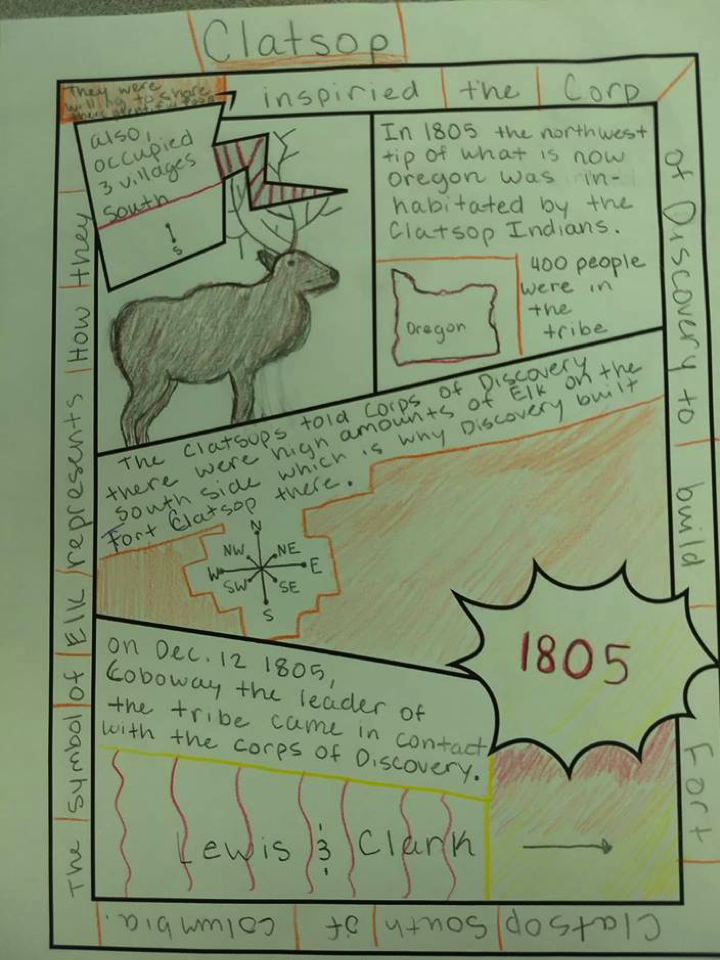 Clatsop
The symbol of Elk represents How they
inspiried the Corp
of Discovery to build Fort
Clatsop South of Columbia.
They were
willing to share
also,
occupied
3 villages
South
S
In 1805 the northwest
tip of what is now
Oregon was in-
habitated by the
Clatsop Indians.
Oregon
400 people
were in
the
tribe
The Clatsups told Corps of Discovery
there were high amounts of Elk on the
South side which is why Discovery built
Fort Clatsop there.
N
NW NE
W E
SW SE
S
1805
on Dec. 12 1805,
Coboway the leader of
the tribe came in contact
with the corps of Discovery.
Lewis & Clark